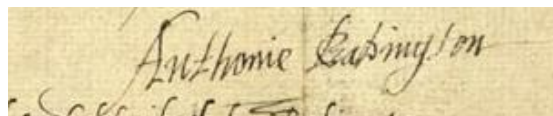 Anthonie Babington